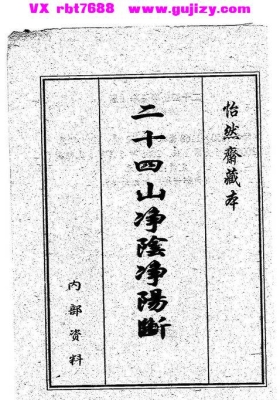 VX rbt7688 www.gujizy.com
怡然齋藏本
二十四山净陰净陽斷
内部资料